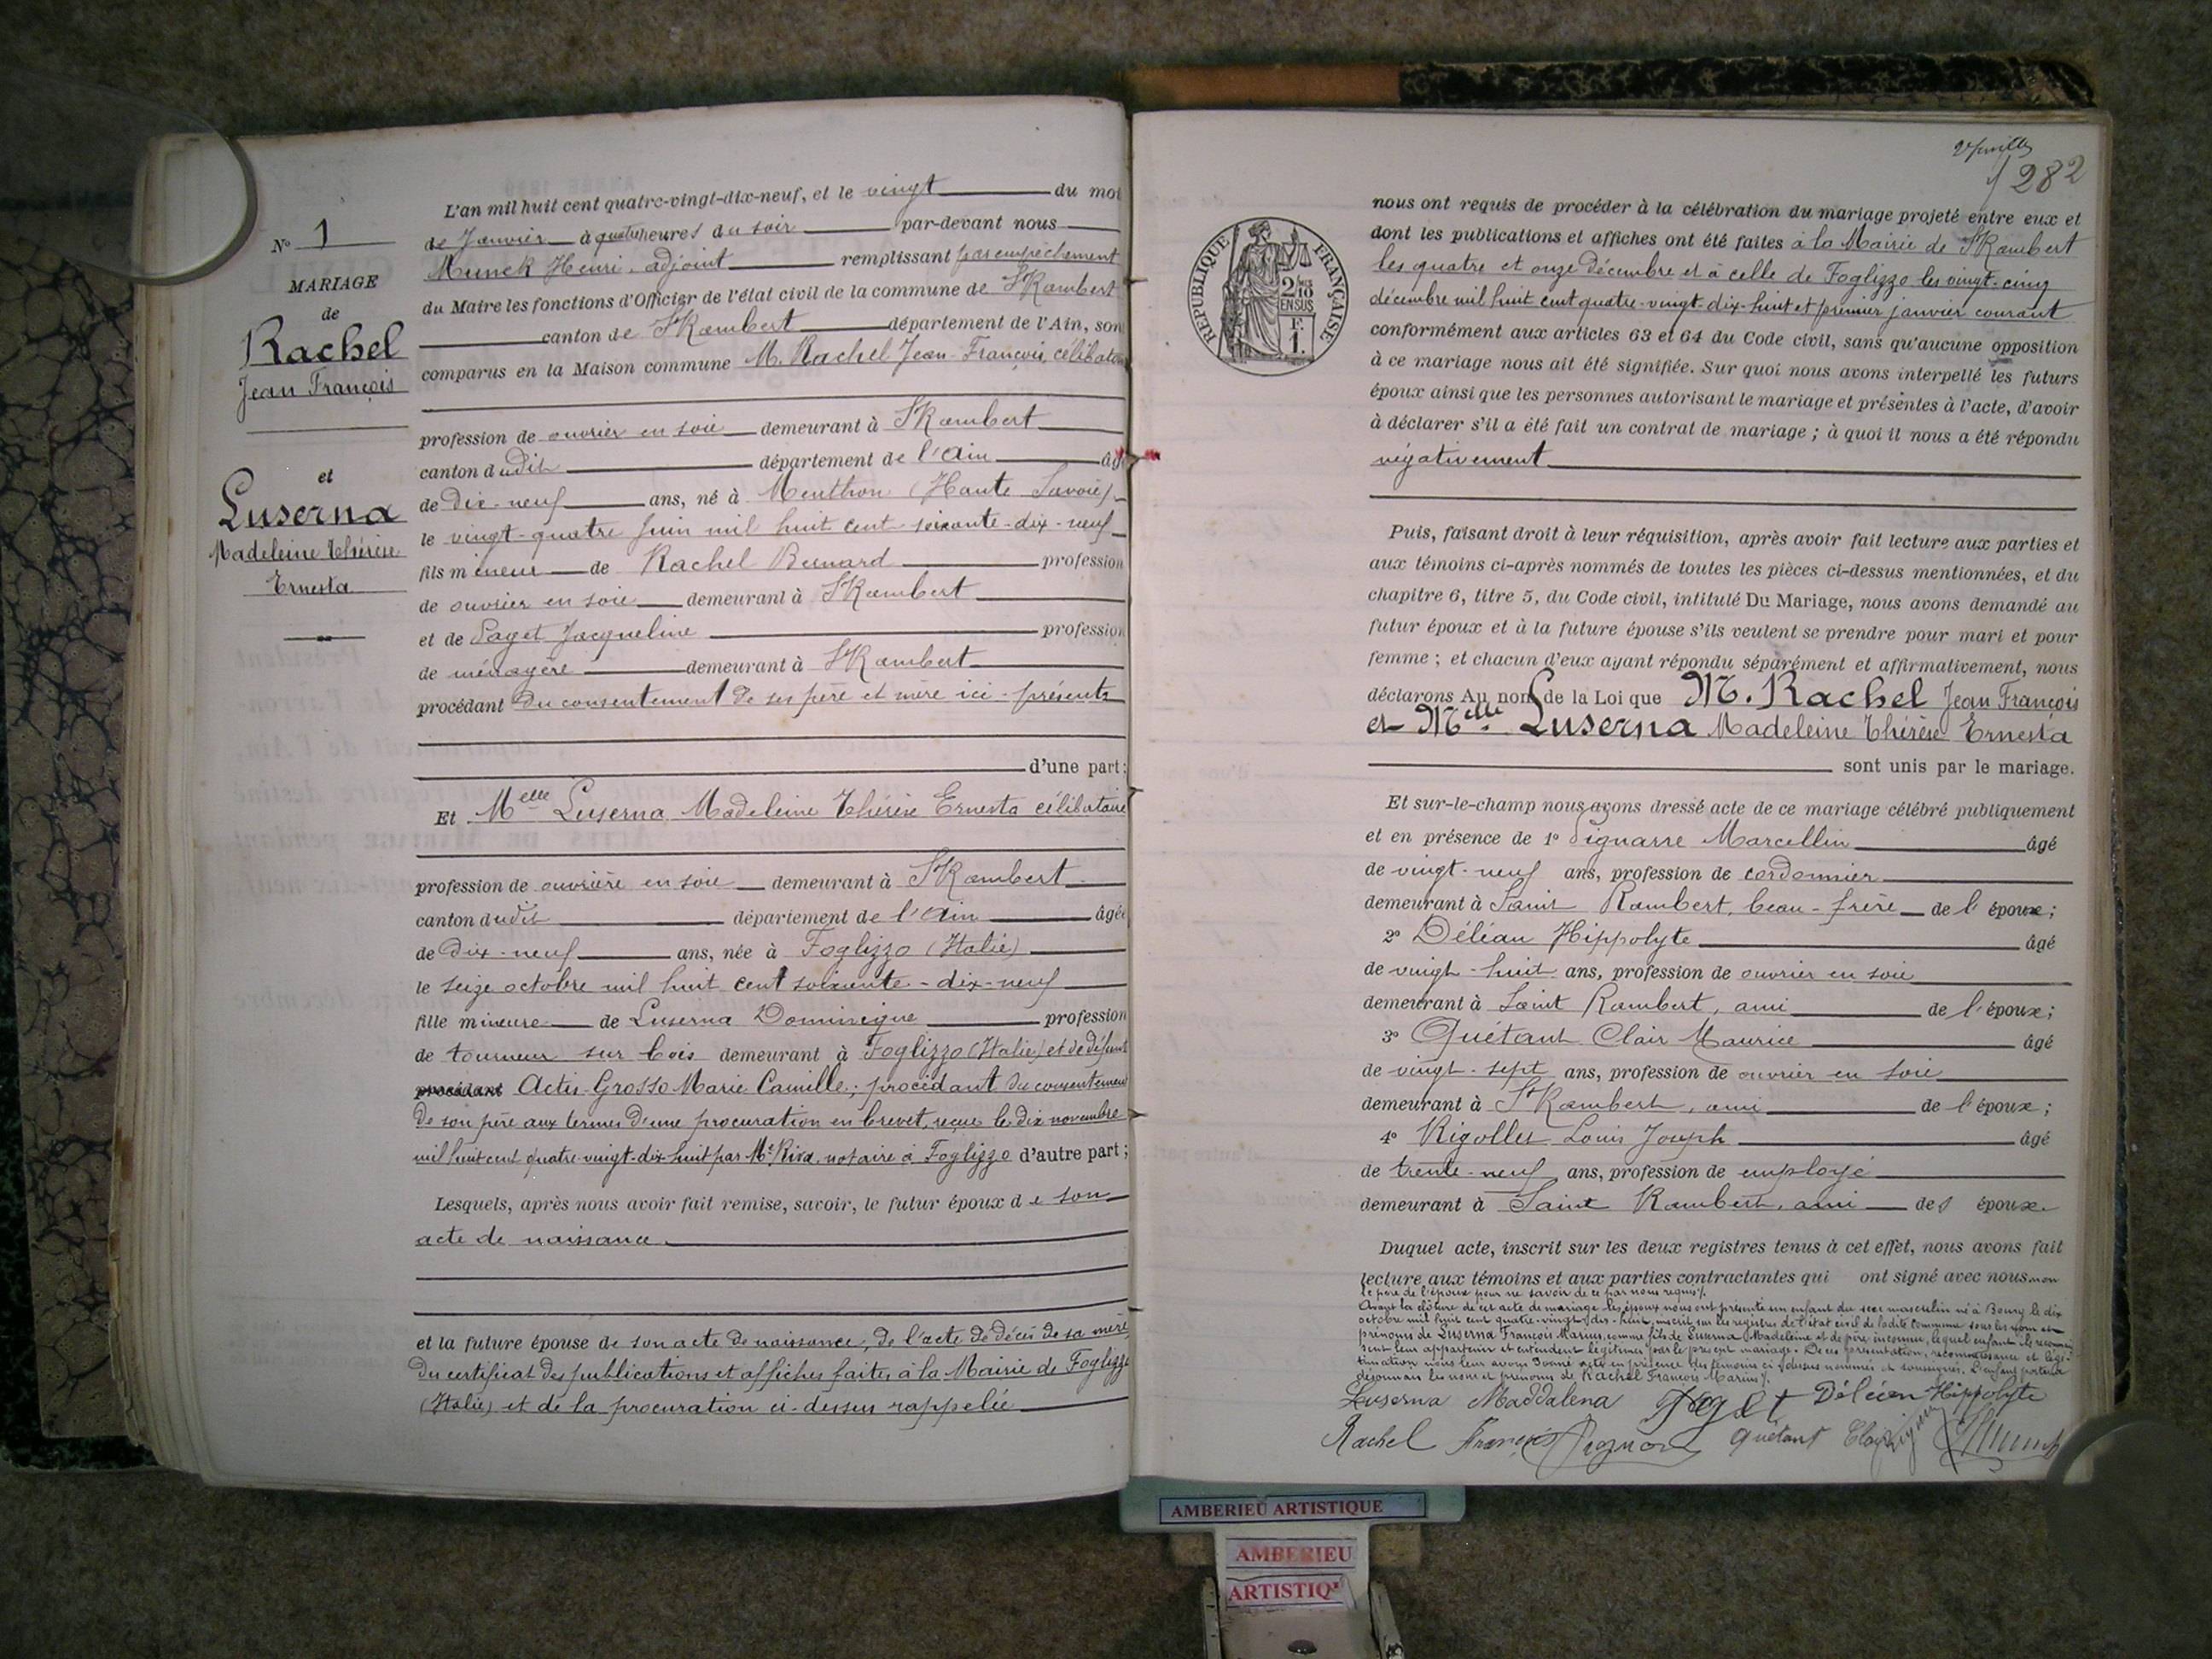 N° 1
MARIAGE
de
Rachel
Jean François
et
Luserna
Madeleine Thérèse
Ernesta
L'an mil huit cent quatre-vingt-dix-neuf, et le vingt du moi
de Janvier à quatre heures du soir par-devant nous
Munck Henri, adjoint remplissant par empêchement
du Maire les fonctions d'Officier de l'état civil de la commune de St Rambert
canton de St Rambert département de l'Ain, son
comparus en la Maison commune M. Rachel Jean-François, célibatai
profession de ouvrier en soie demeurant à St Rambert
canton dudit département de l'Ain âgé
de dix-neuf ans, né à Menthon (Haute Savoie)
le vingt-quatre Juin mil huit cent soixante-dix-neuf
fils mineur de Rachel Bernard profession
de ouvrier en soie demeurant à St Rambert
et de Paget Jacqueline profession
de ménagère demeurant à St Rambert
procédant du consentement de ses père et mère ici-présents
d'une part;
Et Melle Luserna Madeleine Thérèse Ernesta célibataire
profession de ouvrière en soie demeurant à St Rambert
canton dudit département de l'Ain âgée
de dix-neuf ans, née à Foglizzo (Italie)
le seize octobre mil huit cent soixante-dix-neuf
fille mineure de Luserna Dominique profession
de tourneur sur bois demeurant à Foglizzo (Italie) et de défunte
procédant Actis-Grosso Marie Camille; procédant du consentement
de son père aux termes d'une procuration en brevet, reçue le dix novembre
mil huit cent quatre-vingt-dix-huit par Me Riva, notaire à Foglizzo d'autre part;
Lesquels, après nous avoir fait remise, savoir, le futur époux de son
acte de naissance
et la future épouse de son acte de naissance, de l'acte de décès de sa mère
du certificat des publications et affiches faites à la Mairie de Foglizzo
(Italie) et de la procuration ci-dessus rappelée
282
RÉPUBLIQUE FRANÇAISE
2/10
EN SUS
F.
1.
nous ont requis de procéder à la célébration du mariage projeté entre eux et
dont les publications et affiches ont été faites à la Mairie de St Rambert
les quatre et onze décembre et à celle de Foglizzo les vingt-cinq
décembre mil huit cent quatre-vingt-dix-huit et premier janvier courant
conformément aux articles 63 et 64 du Code civil, sans qu'aucune opposition
à ce mariage nous ait été signifiée. Sur quoi nous avons interpellé les futurs
époux ainsi que les personnes autorisant le mariage et présentes à l'acte, d'avoir
à déclarer s'il a été fait un contrat de mariage; à quoi il nous a été répondu
négativement
Puis, faisant droit à leur réquisition, après avoir fait lecture aux parties et
aux témoins ci-après nommés de toutes les pièces ci-dessus mentionnées, et du
chapitre 6, titre 5, du Code civil, intitulé Du Mariage, nous avons demandé au
futur époux et à la future épouse s'ils veulent se prendre pour mari et pour
femme; et chacun d'eux ayant répondu séparément et affirmativement, nous
déclarons Au nom de la Loi que M. Rachel Jean François
et Melle Luserna Madeleine Thérèse Ernesta
sont unis par le mariage.
Et sur-le-champ nous avons dressé acte de ce mariage célébré publiquement
et en présence de 1° Signarre Marcellin âgé
de vingt-neuf ans, profession de cordonnier
demeurant à Saint Rambert, beau-frère de l'époux;
2° Déléan Hippolyte âgé
de vingt-huit ans, profession de ouvrier en soie
demeurant à Saint Rambert, ami de l'époux;
3° Quétant Clair Maurice âgé
de vingt-sept ans, profession de ouvrier en soie
demeurant à St Rambert, ami de l'époux;
4° Rigollet Louis Joseph âgé
de trente-neuf ans, profession de employé
demeurant à Saint Rambert, ami des époux.
Duquel acte, inscrit sur les deux registres tenus à cet effet, nous avons fait
lecture aux témoins et aux parties contractantes qui ont signé avec nous, non
le père de l'époux pour ne savoir de ce par nous requis.
Avant la clôture de cet acte de mariage les époux nous ont présenté un enfant du sexe masculin né à Bourg le dix
octobre mil huit cent quatre-vingt-dix-huit, inscrit sur les registres de l'état civil de ladite commune sous les nom et
prénoms de Luserna François Marius, comme fils de Luserna Madeleine et de père inconnu, lequel enfant ils reconnais
sent leur appartenir et entendent légitimer par le présent mariage. De ces présentation, reconnaissance et légi-
timation nous leur avons donné acte en présence des témoins ci-dessus nommés et soussignés. L'enfant portera
désormais les nom et prénoms de Rachel François Marius.
Luserna Maddalena Paget Déléan Hippolyte
Rachel François Quétant
AMBERIEU ARTISTIQUE
AMBERIEU
ARTISTIQ